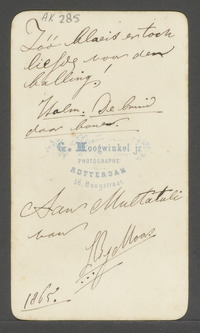 AK 285
Zóó klaeis er toch
liefde voor den
balling!
Holm. De bruid
daar boven.
G. Hoogwinkel jr.
PHOTOGRAPHE
ROTTERDAM
Hoogstraat
Aan Multatuli
van
Moos
1865.